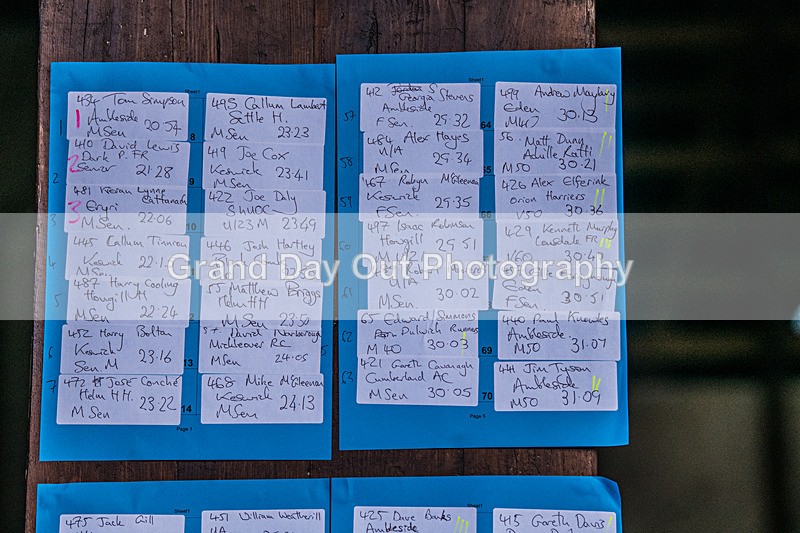 Sheet1
434 Tom Simpson
Ambleside
1
M Sen 20:54
1
410 David Lewis
2 Dark P. FR
Senior 21:28
2
481 Kieran Lynne
Cattanach
3 Eryri
M Sen. 22:06
3
445 Callum Tinnion
Keswick 22:1
M Sen.
4
487 Harry Cooling
Howgill H
M Sen 22:24
5
452 Harry Bolton
Keswick
Sen. M 23:16
6
472 José Conché
Helm H.H.
M Sen 23:22
7
8
495 Callum Lambert
Settle H.
M Sen 23:23
9
419 Joe Cox
Keswick 23:41
M Sen
10
422 Joe Daly
ShUOC
U/23 M 23:49
446 Josh Hartley
M Sen
15 Matthew Briggs
Helm HH
M Sen 23:50
13
57 David Narborough
Mickleover RC
M Sen 24:05
14
468 Mike McGleenan
Keswick 24:13
M Sen
Page 1
Sheet1
57
412 Jordan S
Georgia Stevens
Ambleside
F Sen 29:32
58
484 Alex Hayes
U/A
M Sen 29:34
467 Robyn McGleenan
Keswick 29:35
F Sen.
60
497 Isaac Robinson
Howgill 29:51
61
U/A
M Sen 30:02
62
65 Edward Simmons
Dulwich Runners
M 40 30:03
63
421 Gareth Cavanagh
Cumberland AC
M Sen 30:05
64
499 Andrew Maylavy
Eden 30:13
M40
65
56 Matt Duny
Achille Ratti
M50 30:21
66
426 Alex Elferink
Orion Harriers
V50 30:36
429 Kenneth Murphy
Lonsdale FR
V60 30:4
Eden
F Sen 30:51
69
440 Paul Knowles
Ambleside.
M50 31:07
70
441 Jim Tyson
Ambleside
M50 31:09
Page 5
Grand Day Out Photography
Sheet1
475 Jack Gill
451 William Weatherill
U/A
Sheet1
425 Dave Banks
Ambleside
415 Gareth Davis